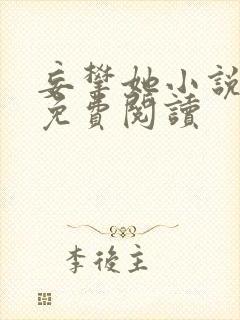 妄攀她小說
免費閱讀
李後主